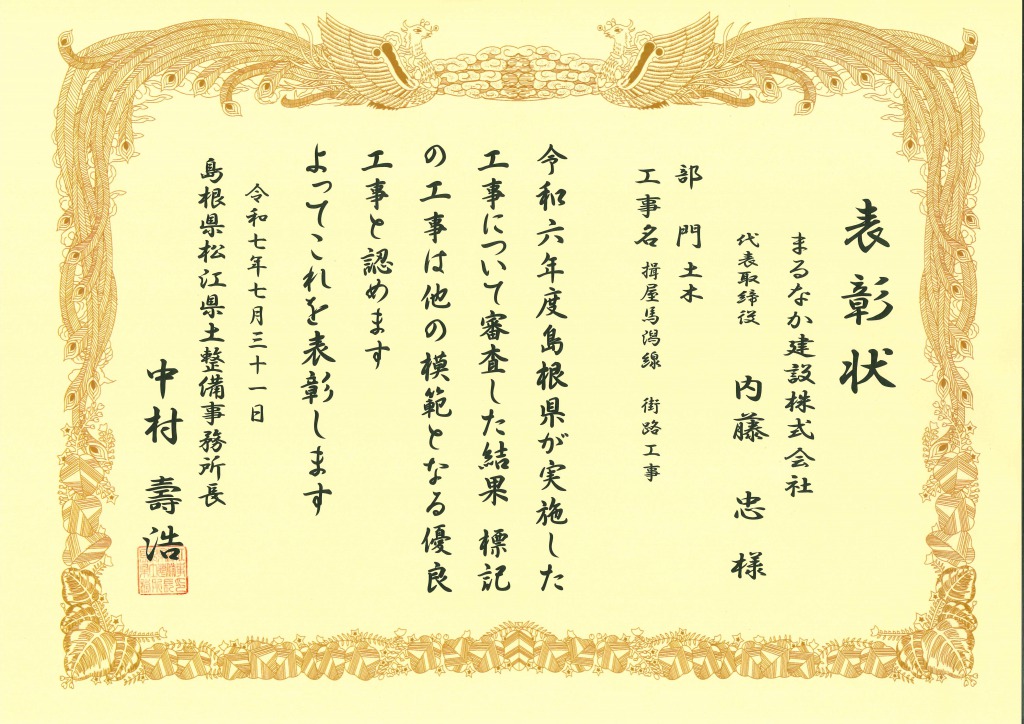 表彰状
まるなか建設株式会社
代表取締役 内藤 忠 様
部門 土木
工事名 揖屋馬潟線 街路工事
令和六年度島根県が実施した
工事について審査した結果 標記
の工事は他の模範となる優良
工事と認めます
よってこれを表彰します
令和七年七月三十一日
島根県松江県土整備事務所長
中村 壽浩